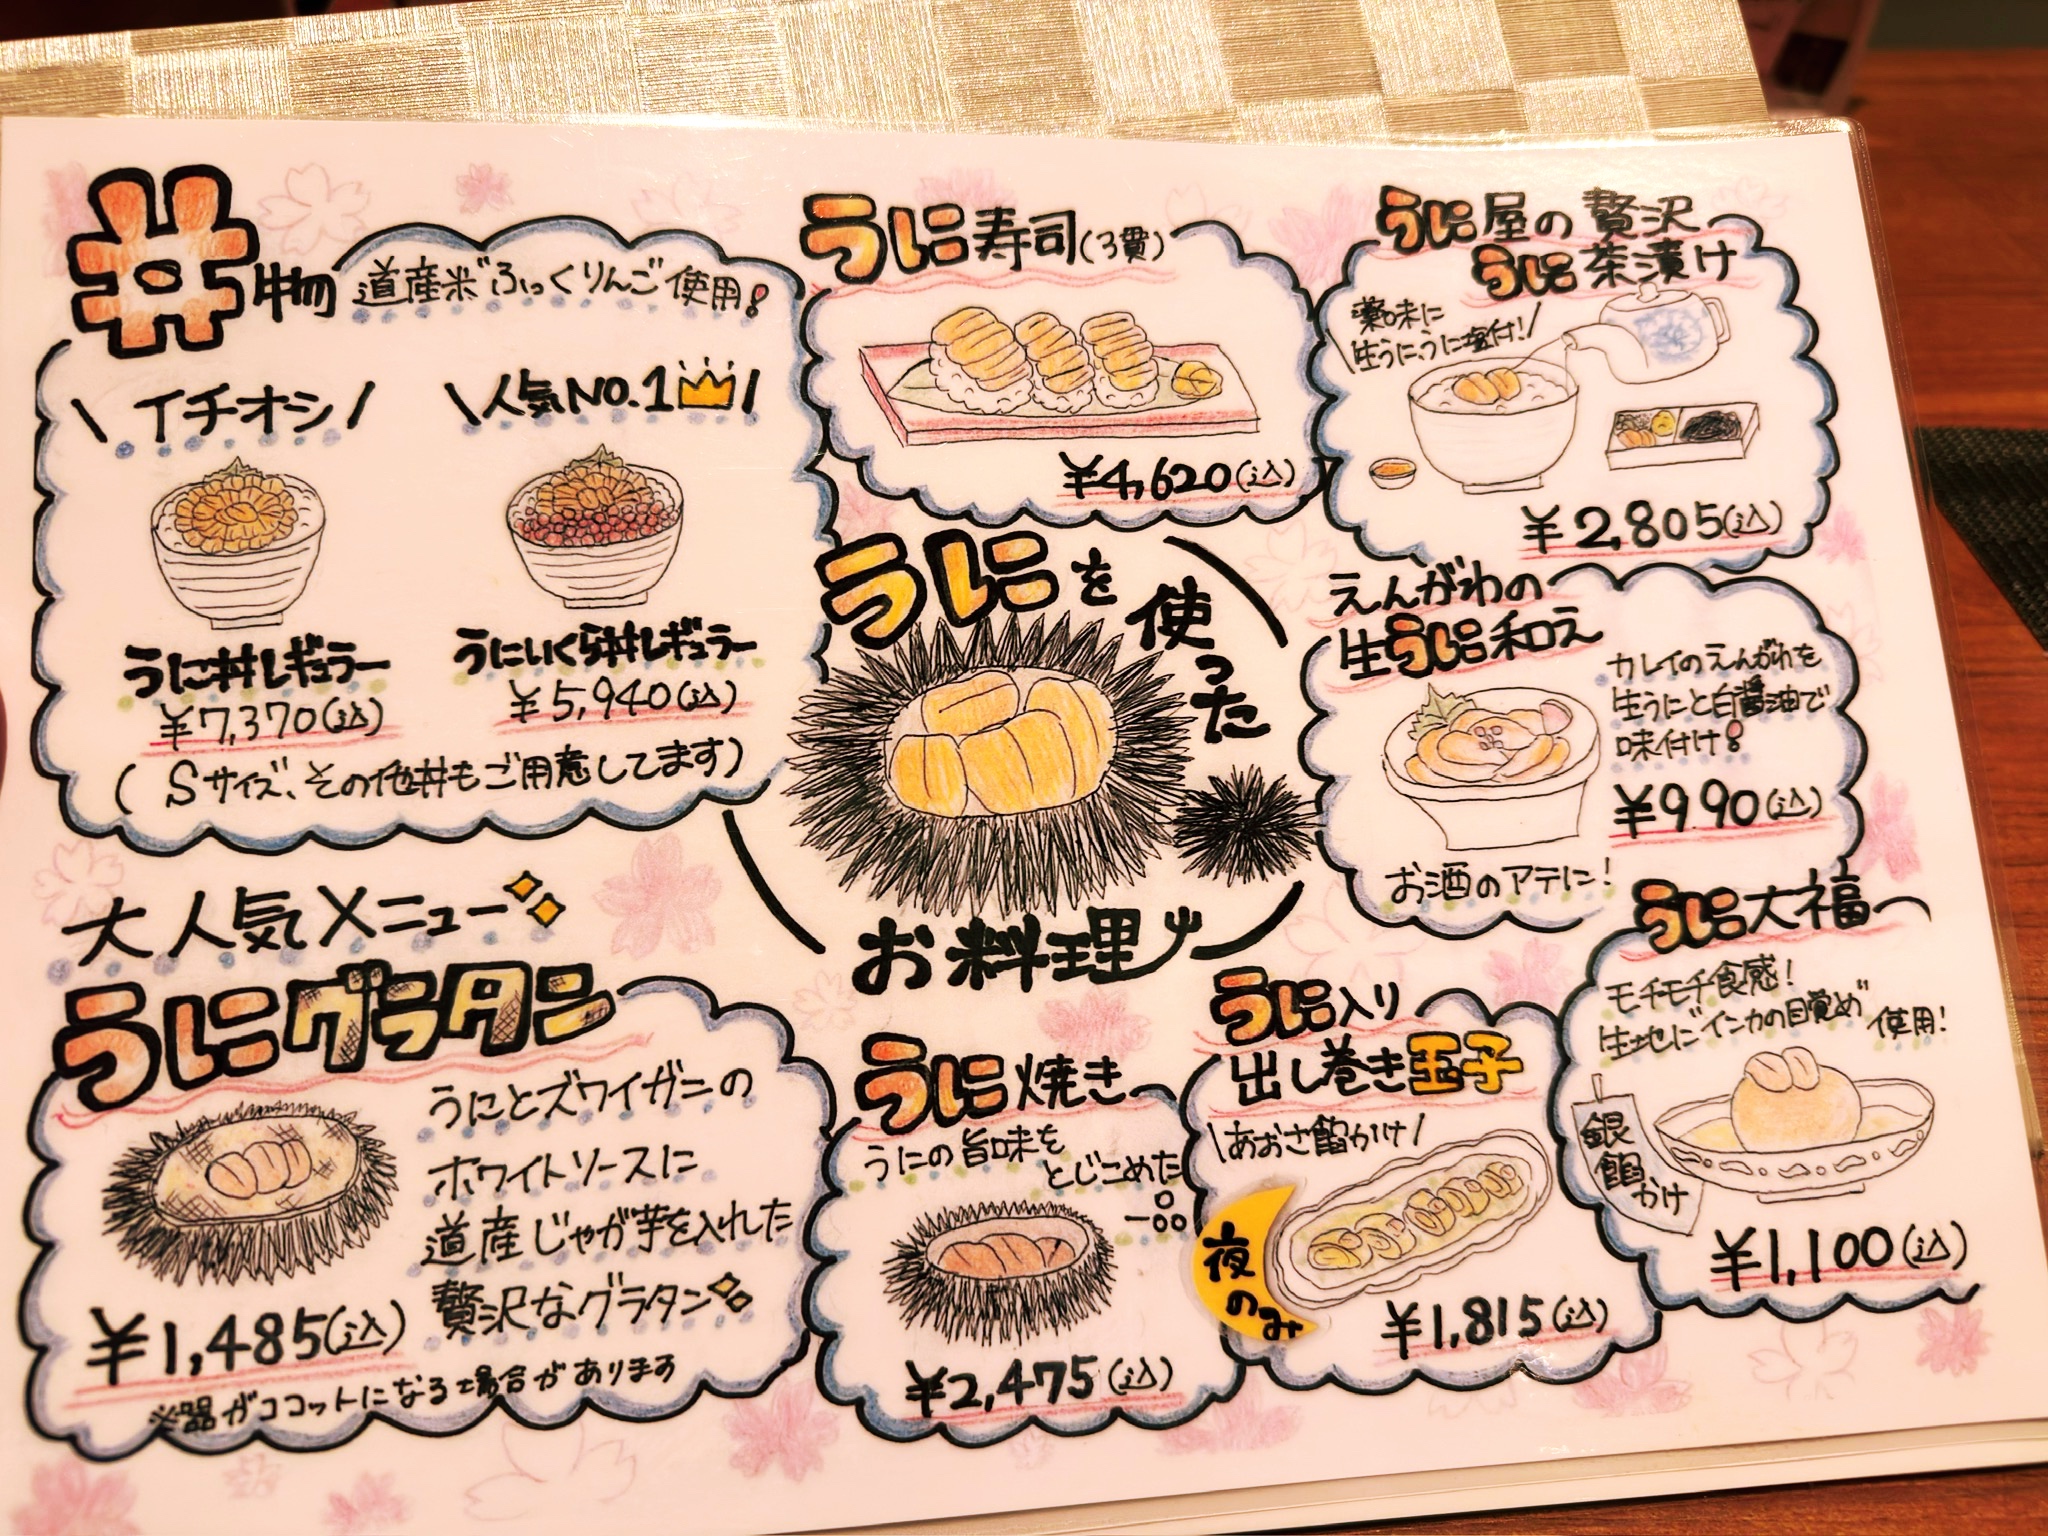 丼物
道産米"ふっくりんご"使用!
\イチオシ/
\人気NO.1/
うに丼レギュラー
¥7,370(込)
うにいくら丼レギュラー
¥5,940(込)
(Sサイズ、その他丼もご用意してます)
うに寿司(3貫)
¥4,620(込)
うに屋の贅沢
うに茶漬け
薬味に
生うに、うに塩付!
¥2,805(込)
うにを
使った
お料理
えんがわの
生うに和え
カレイのえんがわを
生うにと白醤油で
味付け!
¥990(込)
お酒のアテに!
大人気メニュー
うにグラタン
うにとズワイガニの
ホワイトソースに
道産じゃが芋を入れた
贅沢なグラタン
¥1,485(込)
※器がココットになる場合があります
うに焼き
うにの旨味を
とじこめた
一品
¥2,475(込)
うに入り
出し巻き玉子
\あおさ餡かけ/
夜
のみ
¥1,815(込)
うに大福
モチモチ食感!
生地に"インカの目覚め"使用!
銀
餡
かけ
¥1,100(込)